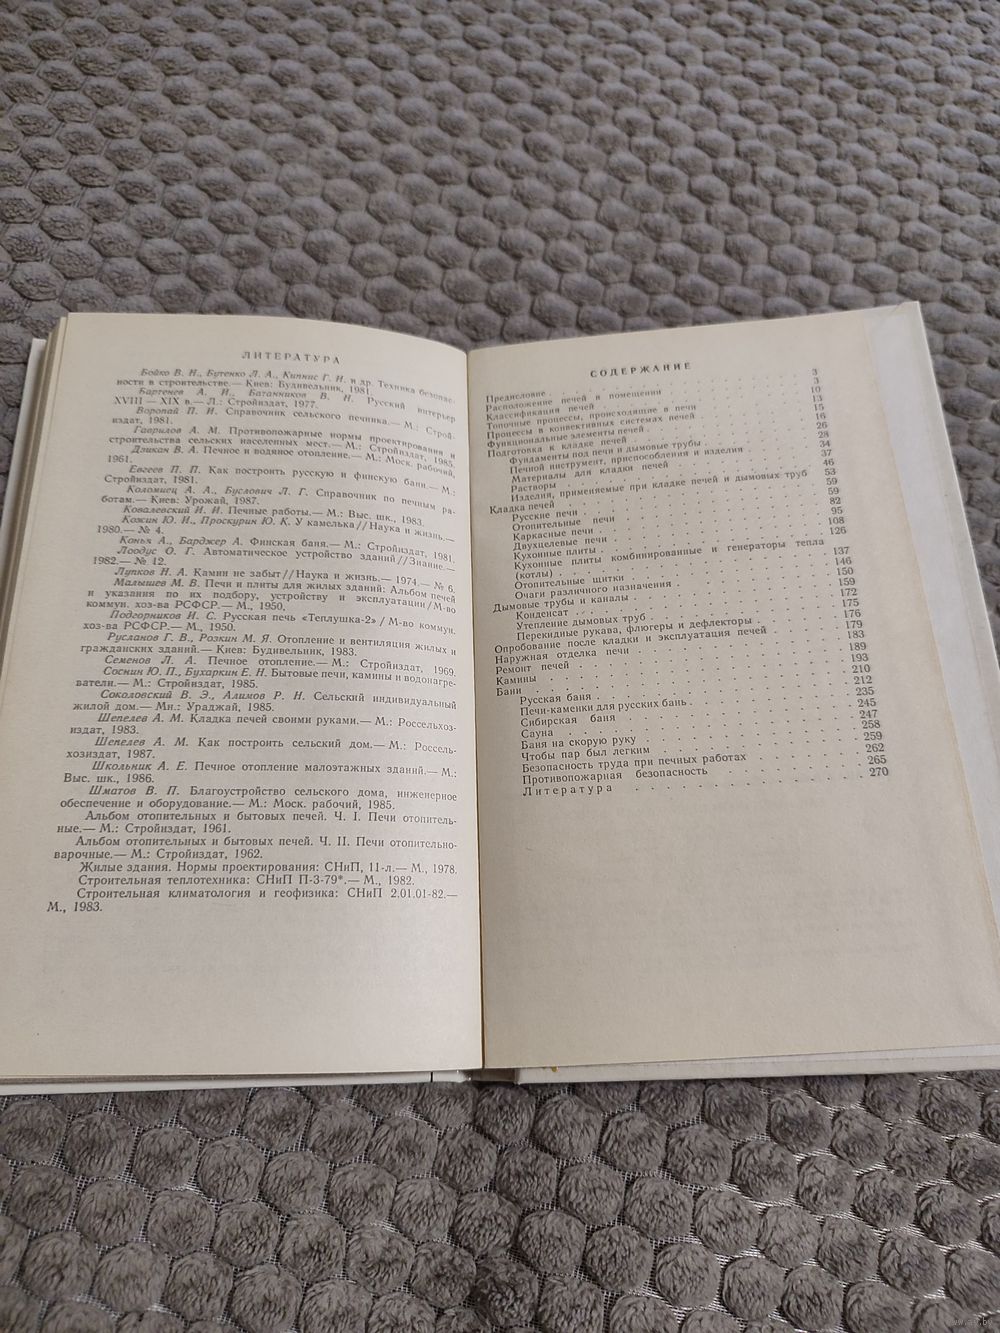 ЛИТЕРАТУРА
Бойко В. Н., Бутенко Л. А., Кипнис Г. И. и др. Техника безопас-
ности в строительстве.— Киев: Будивельник, 1981.
Бартенев А. И., Батанников В. Н. Русский интерьер
XVIII — XIX в.— Л.: Стройиздат, 1977.
Воропай П. И. Справочник сельского печника.— М.: Строй-
издат, 1981.
Гаврилов А. М. Противопожарные нормы проектирования и
строительства сельских населенных мест.— М.: Стройиздат, 1985.
Дзикан В. А. Печное и водяное отопление.— М.: Моск. рабочий,
1961.
Евгеев П. П. Как построить русскую и финскую бани.— М.:
Стройиздат, 1981.
Коломиец А. А., Буслович Л. Г. Справочник по печным ра-
ботам.— Киев: Урожай, 1987.
Ковалевский И. И. Печные работы.— М.: Выс. шк., 1983.
Кожин Ю. И., Проскурин Ю. К. У камелька//Наука и жизнь.—
1980.— № 4.
Конья А., Барджер А. Финская баня.— М.: Стройиздат, 1981.
Лоодус О. Г. Автоматическое устройство зданий//Знание.—
1982.— № 12.
Лупков Н. А. Камин не забыт//Наука и жизнь.— 1974.— № 6.
Малышев М. В. Печи и плиты для жилых зданий: Альбом печей
и указания по их подбору, устройству и эксплуатации/М-во
коммун. хоз-ва РСФСР.— М., 1950.
Подгорников И. С. Русская печь «Теплушка-2» / М-во коммун.
хоз-ва РСФСР.— М., 1950.
Русланов Г. В., Розкин М. Я. Отопление и вентиляция жилых и
гражданских зданий.— Киев: Будивельник, 1983.
Семенов Л. А. Печное отопление.— М.: Стройиздат, 1969.
Соснин Ю. П., Бухаркин Е. Н. Бытовые печи, камины и водонагре-
ватели.— М.: Стройиздат, 1985.
Соколовский В. Э., Алимов Р. Н. Сельский индивидуальный
жилой дом.— Мн.: Ураджай, 1985.
Шепелев А. М. Кладка печей своими руками.— М.: Россельхоз-
издат, 1983.
Шепелев А. М. Как построить сельский дом.— М.: Россель-
хозиздат, 1987.
Школьник А. Е. Печное отопление малоэтажных зданий.— М.:
Выс. шк., 1986.
Шматов В. П. Благоустройство сельского дома, инженерное
обеспечение и оборудование.— М.: Моск. рабочий, 1985.
Альбом отопительных и бытовых печей. Ч. I. Печи отопитель-
ные.— М.: Стройиздат, 1961.
Альбом отопительных и бытовых печей. Ч. II. Печи отопительно-
варочные.— М.: Стройиздат, 1962.
Жилые здания. Нормы проектирования: СНиП, 11-л.— М., 1978.
Строительная теплотехника: СНиП П-3-79*.— М., 1982.
Строительная климатология и геофизика: СНиП 2.01.01-82.—
М., 1983.
СОДЕРЖАНИЕ
Предисловие 3
Расположение печей в помещении 3
Классификация печей 10
Топочные процессы, происходящие в печи 13
Процессы в конвективных системах печей 15
Функциональные элементы печей 16
Подготовка к кладке печей 26
Фундаменты под печи и дымовые трубы 28
Печной инструмент, приспособления и изделия 34
Материалы для кладки печей 37
Растворы 46
Изделия, применяемые при кладке печей и дымовых труб 53
Кладка печей 59
Русские печи 59
Отопительные печи 82
Каркасные печи 95
Двухцелевые печи 108
Кухонные плиты 126
Кухонные плиты комбинированные и генераторы тепла
(котлы) 137
Отопительные щитки 146
Очаги различного назначения 150
Дымовые трубы и каналы 159
Конденсат 172
Утепление дымовых труб 175
Перекидные рукава, флюгеры и дефлекторы 176
Опробование после кладки и эксплуатация печей 179
Наружная отделка печи 183
Ремонт печей 189
Камины 193
Бани 210
Русская баня 212
Печи-каменки для русских бань 235
Сибирская баня 245
Сауна 247
Баня на скорую руку 258
Чтобы пар был легким 259
Безопасность труда при печных работах 262
Противопожарная безопасность 265
Литература 270
www.ay.by